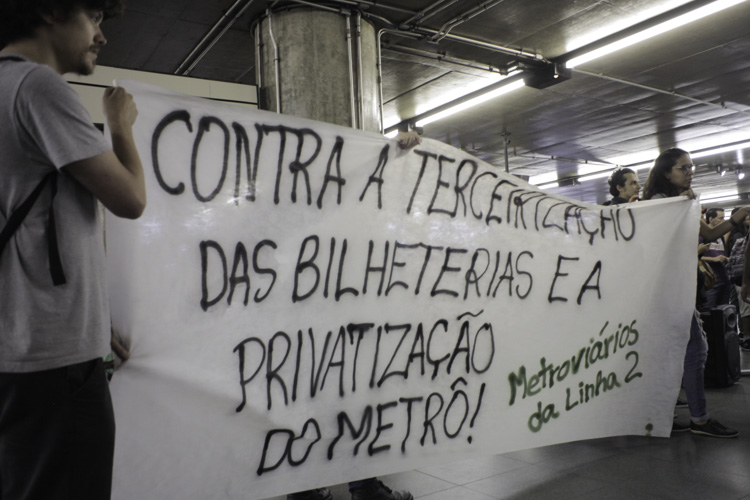 CONTRA A TERCEIRIZAÇÃO
DAS BILHETERIAS E A
PRIVATIZAÇÃO
DO METRÔ!
Metroviários
da Linha 2